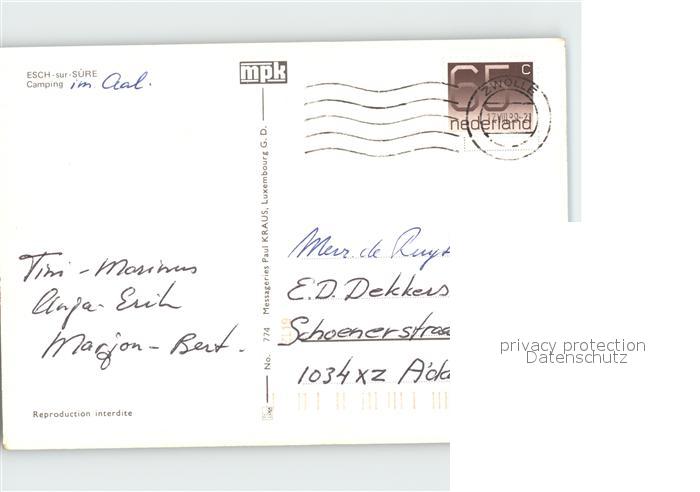 ESCH-sur-SÛRE
Camping im Aal.
mpk
65 c
nederland
ZWOLLE
Messageries Paul KRAUS, Luxembourg G. D.
No. 774
Tini - Marinus
Anja - Erik
Marjon - Bert.
Mevr. de Ruyt
E.D. Dekkers
Schoenerstraa
1034XZ A'da
Reproduction interdite
privacy protection
Datenschutz